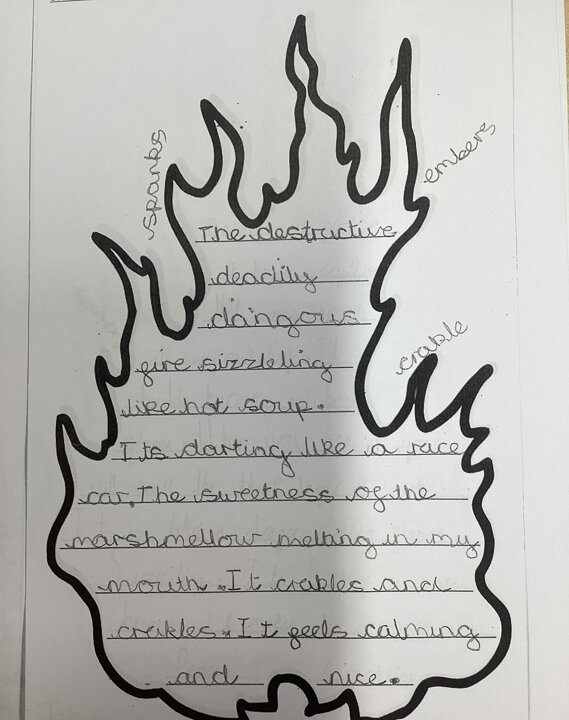 sparks
embers
crakle
The destructive
deadily
dangous
fire sizzleling
like hot soup.
Its darting like a race
car. The sweetness of the
marshmellow melting in my
mouth. It crakles and
crakles. It feels calming
and nice.